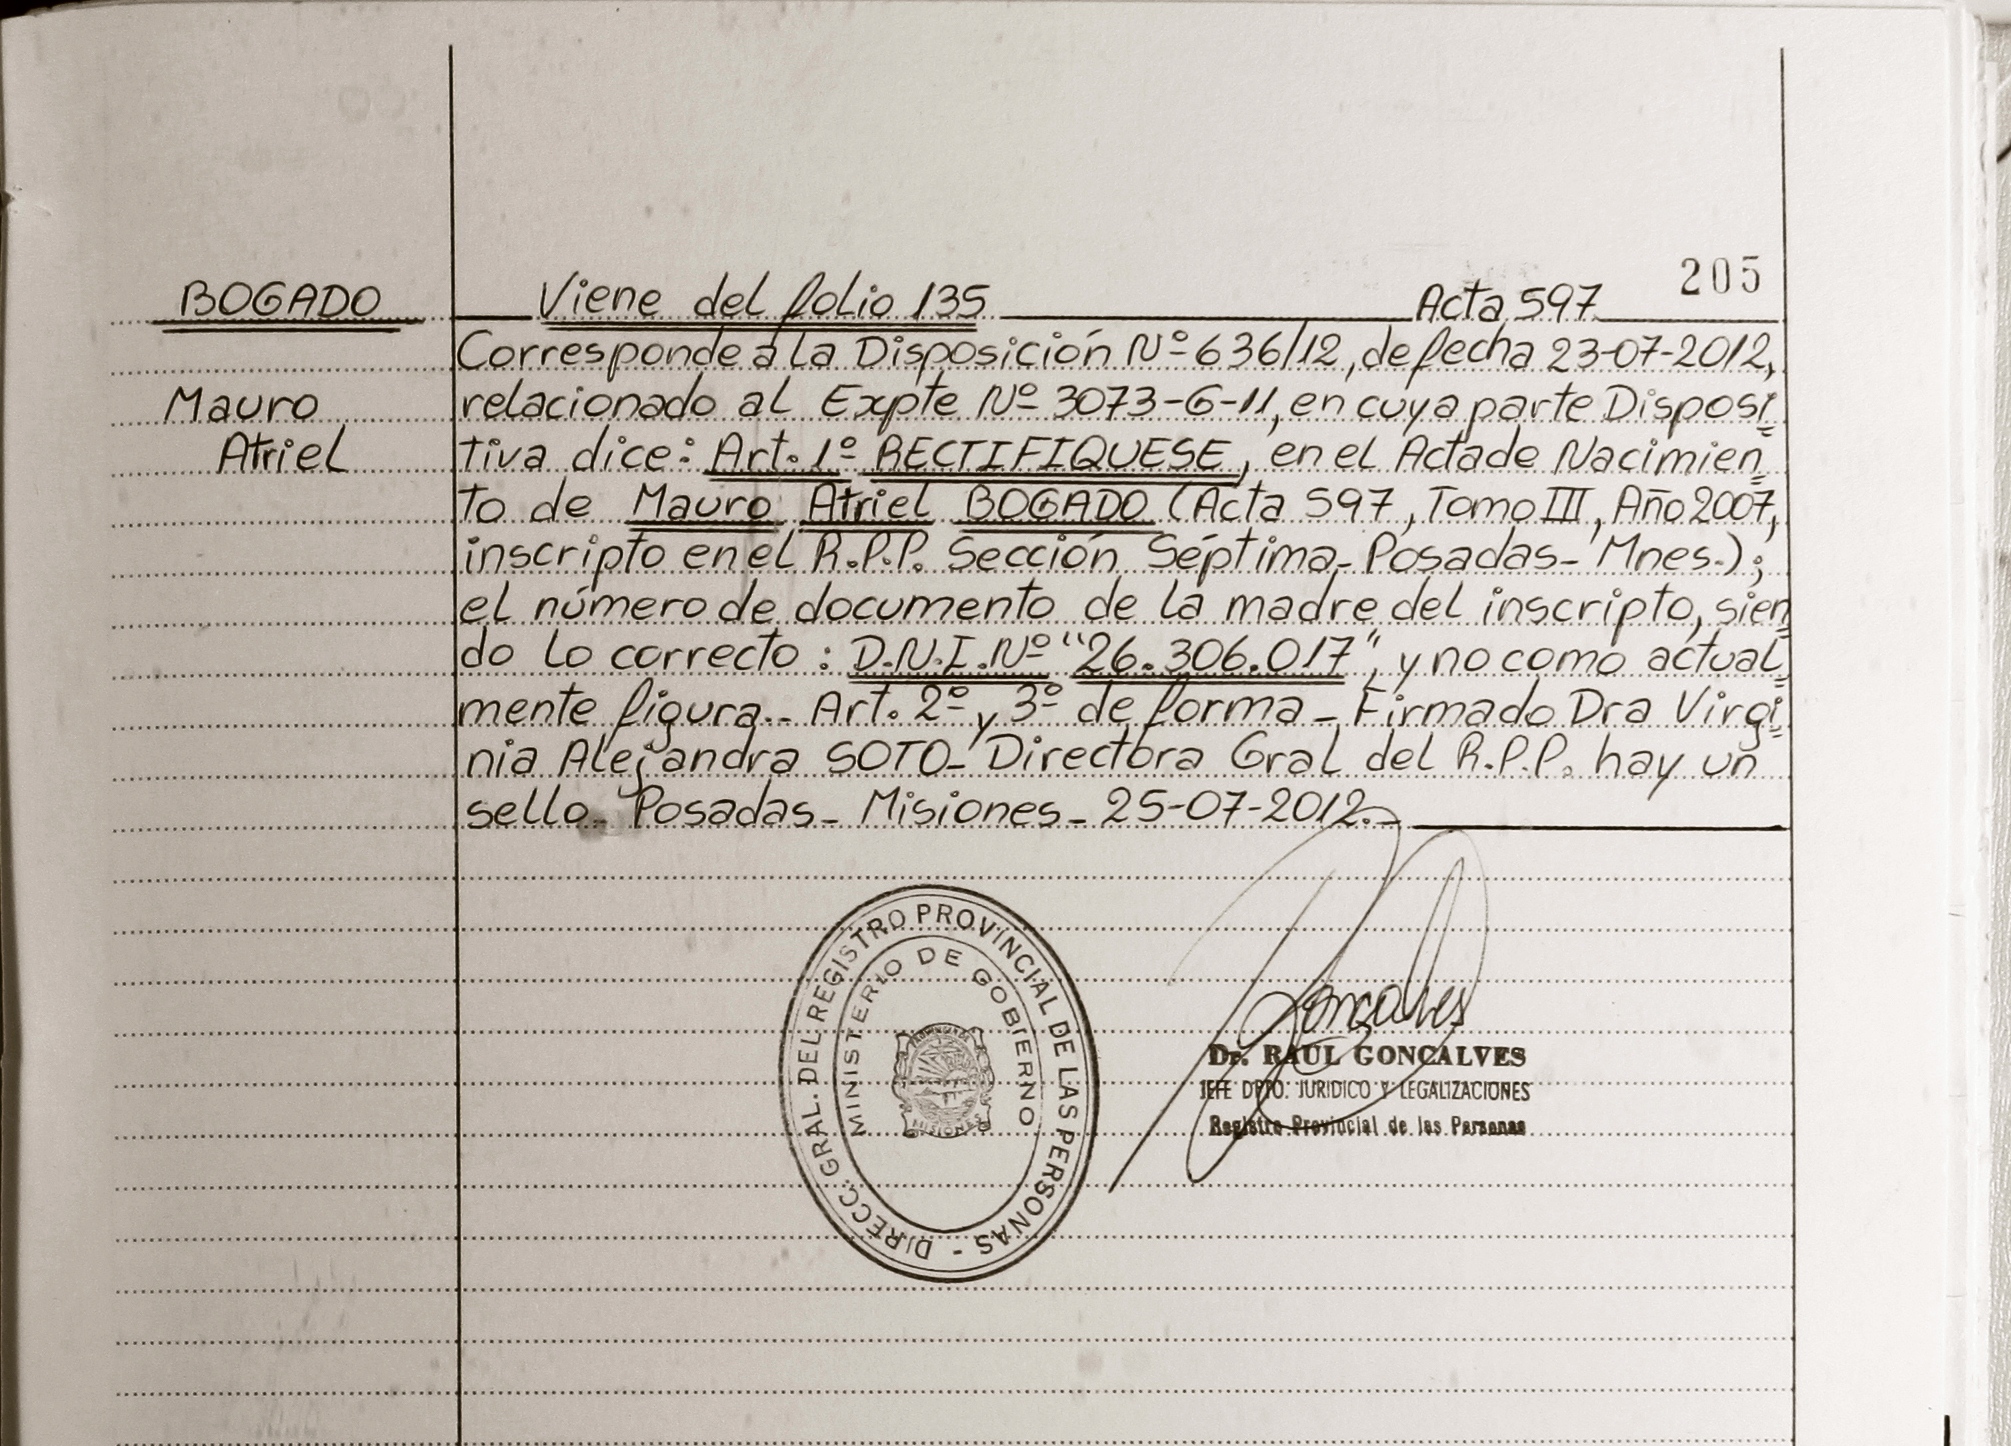 205
BOGADO
Mauro
Atriel
Viene del folio 135 Acta 597
Corresponde a la Disposición Nº 636/12, de fecha 23-07-2012,
relacionado al Expte Nº 3073-G-11, en cuya parte Disposi=
tiva dice: Art. 1º RECTIFIQUESE, en el Acta de Nacimien=
to de Mauro Atriel BOGADO (Acta 597, Tomo III, Año 2007,
inscripto en el R.P.P. Sección Séptima- Posadas- Mnes.);
el número de documento de la madre del inscripto, sien=
do lo correcto: D.N.I. Nº "26.306.017", y no como actual=
mente figura.- Art. 2º y 3º de forma - Firmado Dra Virgi=
nia Alejandra SOTO- Directora Gral del R.P.P. hay un
sello- Posadas- Misiones- 25-07-2012.-
DIRECC. GRAL. DEL REGISTRO PROVINCIAL DE LAS PERSONAS -
MINISTERIO DE GOBIERNO
MISIONES
Goncalves
Dr. RAUL GONCALVES
JEFE DPTO. JURIDICO Y LEGALIZACIONES
Registro Provincial de las Personas